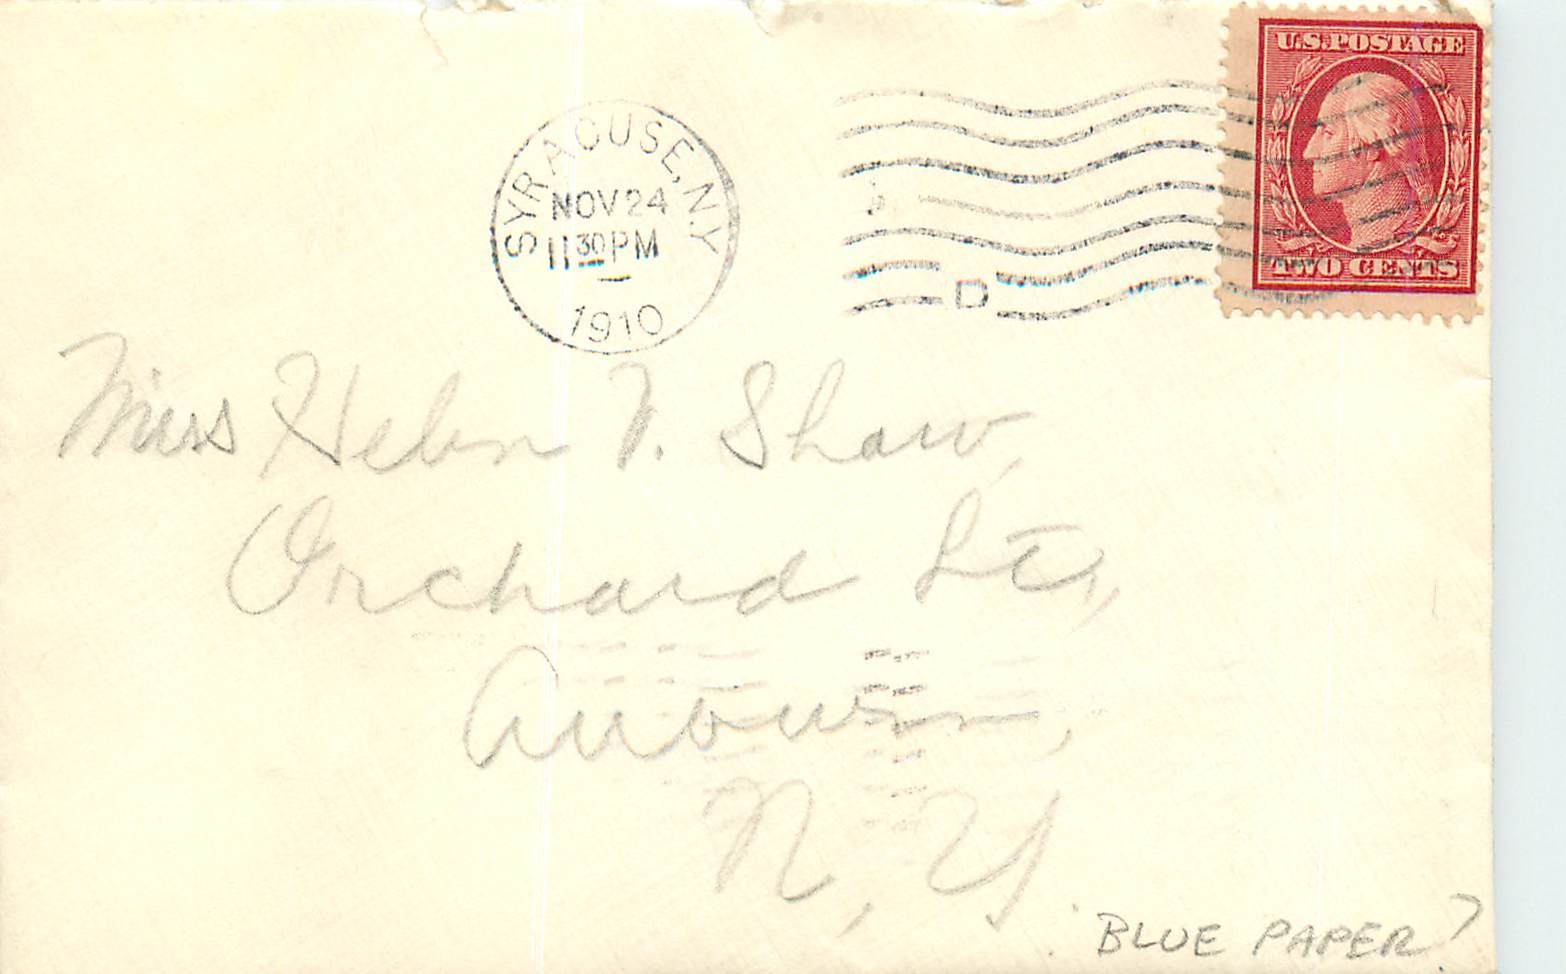 U.S. POSTAGE
TWO CENTS
SYRACUSE, N.Y.
NOV 24
11 30 PM
1910
D
Miss Helen V. Shaw,
Orchard St.,
Auburn,
N. Y.
BLUE PAPER?